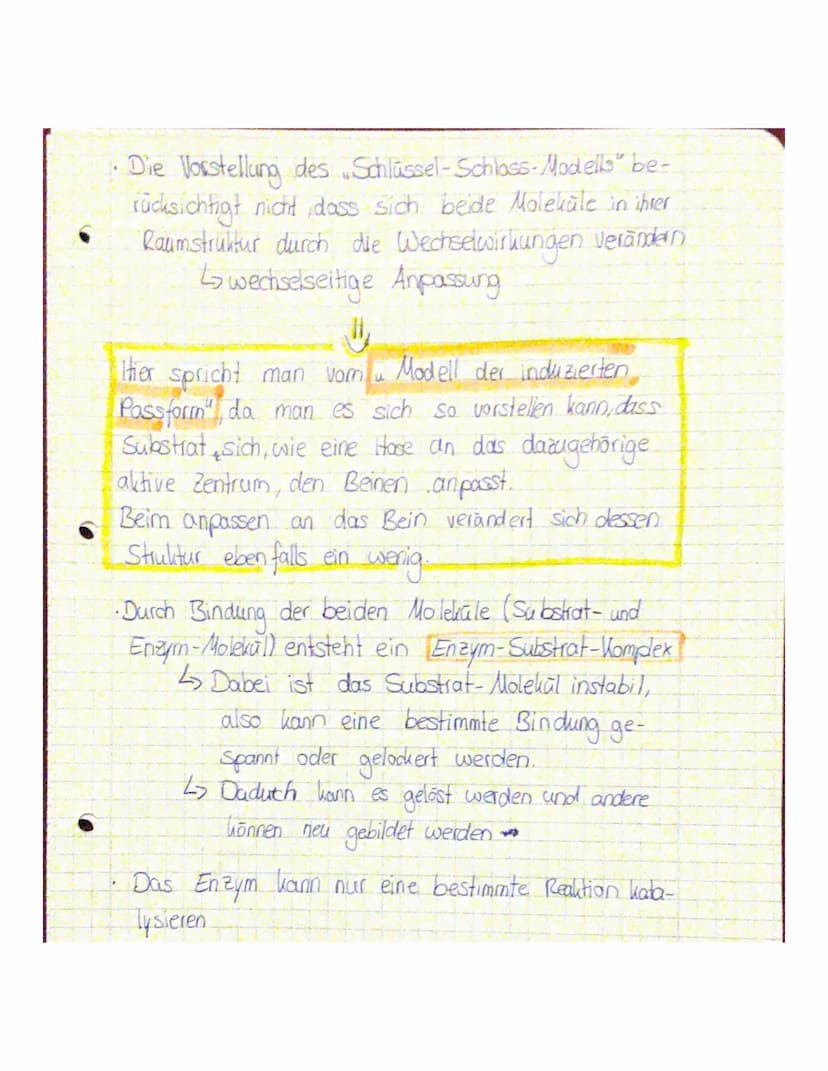 · Die Vorstellung des „Schlüssel-Schloss-Modells" be-
rücksichtigt nicht, dass sich beide Moleküle in ihrer
Raumstruktur durch die Wechselwirkungen verändern
↳ wechselseitige Anpassung
⇓
Hier spricht man vom „Modell der induzierten
Passform", da man es sich so vorstellen kann, dass
Substrat, sich, wie eine Hose an das dazugehörige
aktive Zentrum, den Beinen, anpasst.
Beim anpassen an das Bein verändert sich dessen
Struktur ebenfalls ein wenig.
· Durch Bindung der beiden Moleküle (Substrat- und
Enzym-Molekül) entsteht ein Enzym-Substrat-Komplex
↳ Dabei ist das Substrat-Molekül instabil,
also kann eine bestimmte Bindung ge-
spannt oder gelockert werden.
↳ Daduch kann es gelöst werden und andere
können neu gebildet werden
· Das Enzym kann nur eine bestimmte Reaktion kata-
lysieren